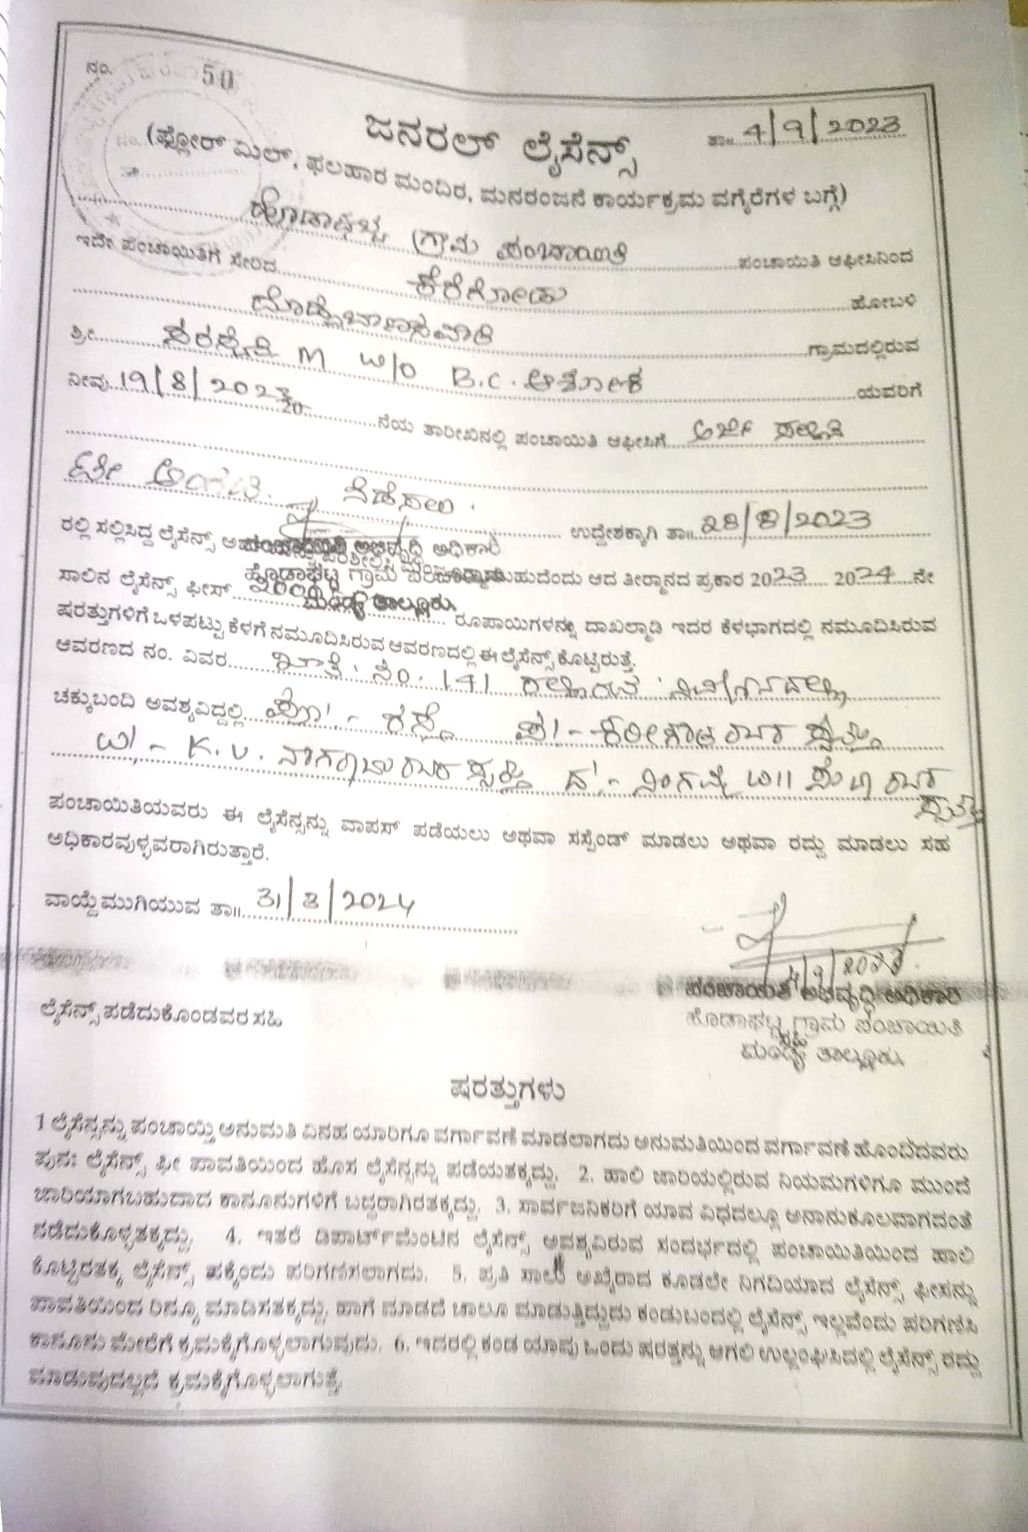 ನಂ. 50
ಜನರಲ್ ಲೈಸೆನ್ಸ್
ತಾ॥ 4/9/2023
(ಫ್ಲೋರ್ ಮಿಲ್, ಫಲಹಾರ ಮಂದಿರ, ಮನರಂಜನೆ ಕಾರ್ಯಕ್ರಮ ವಗೈರೆಗಳ ಬಗ್ಗೆ)
ಹೊಡಾಘಟ್ಟ ಗ್ರಾಮ ಪಂಚಾಯಿತಿ ಪಂಚಾಯಿತಿ ಆಫೀಸಿನಿಂದ
ಇದೇ ಪಂಚಾಯಿತಿಗೆ ಸೇರಿದ ಕೆರೆಗೋಡು ಹೋಬಳಿ
ದೊಡ್ಡಬಾಣಸವಾಡಿ ಗ್ರಾಮದಲ್ಲಿರುವ
ಶ್ರೀ ಸರಸ್ವತಿ M W/O B.C. ಅಶೋಕ ಯವರಿಗೆ
ನೀವು 19/8/2023 20 ನೆಯ ತಾರೀಖಿನಲ್ಲಿ ಪಂಚಾಯಿತಿ ಆಫೀಸಿಗೆ ಅರ್ಜಿ ಸಲ್ಲಿಸಿ
ಟೀ ಅಂಗಡಿ ನೆಡೆಸಲು. ಉದ್ದೇಶಕ್ಕಾಗಿ ತಾ॥ 28/8/2023
ರಲ್ಲಿ ಸಲ್ಲಿಸಿದ್ದ ಲೈಸೆನ್ಸ್ ಪಂಚಾಯಿತಿ ಅಭಿವೃದ್ಧಿ ಅಧಿಕಾರಿ
ಹೊಡಾಘಟ್ಟ ಗ್ರಾಮ ಪಂಚಾಯಿತಿ
ಮಂಡ್ಯ ತಾಲ್ಲೂಕು.
ಆದ ತೀರ್ಮಾನದ ಪ್ರಕಾರ 2023 2024 ನೇ
ಸಾಲಿನ ಲೈಸೆನ್ಸ್ ಫೀಸ್ ರೂಪಾಯಿಗಳನ್ನು ದಾಖಲ್ಮಾಡಿ ಇದರ ಕೆಳಭಾಗದಲ್ಲಿ ನಮೂದಿಸಿರುವ
ಷರತ್ತುಗಳಿಗೆ ಒಳಪಟ್ಟು ಕೆಳಗೆ ನಮೂದಿಸಿರುವ ಆವರಣದಲ್ಲಿ ಈ ಲೈಸೆನ್ಸ್ ಕೊಟ್ಟಿರುತ್ತೆ.
ಆವರಣದ ನಂ. ವಿವರ ಖಾತೆ ನಂ. 141
ಚಕ್ಕುಬಂದಿ ಅವಶ್ಯವಿದ್ದಲ್ಲಿ ಪೂ।- ರಸ್ತೆ ಪ।-
ಉ।- K.V. ನಾಗರಾಜು ರವರ ಸ್ವತ್ತು ದ।-
ಸ್ವತ್ತು
ಪಂಚಾಯಿತಿಯವರು ಈ ಲೈಸೆನ್ಸನ್ನು ವಾಪಸ್ ಪಡೆಯಲು ಅಥವಾ ಸಸ್ಪೆಂಡ್ ಮಾಡಲು ಅಥವಾ ರದ್ದು ಮಾಡಲು ಸಹ
ಅಧಿಕಾರವುಳ್ಳವರಾಗಿರುತ್ತಾರೆ.
ವಾಯ್ದೆ ಮುಗಿಯುವ ತಾ॥ 31/3/2024
4/9/2023
ಪಂಚಾಯಿತಿ ಅಭಿವೃದ್ಧಿ ಅಧಿಕಾರಿ
ಲೈಸೆನ್ಸ್ ಪಡೆದುಕೊಂಡವರ ಸಹಿ
ಹೊಡಾಘಟ್ಟ ಗ್ರಾಮ ಪಂಚಾಯಿತಿ
ಮಂಡ್ಯ ತಾಲ್ಲೂಕು.
ಷರತ್ತುಗಳು
1 ಲೈಸೆನ್ಸನ್ನು ಪಂಚಾಯ್ತಿ ಅನುಮತಿ ವಿನಹ ಯಾರಿಗೂ ವರ್ಗಾವಣೆ ಮಾಡಲಾಗದು ಅನುಮತಿಯಿಂದ ವರ್ಗಾವಣೆ ಹೊಂದಿದವರು
ಪುನಃ ಲೈಸೆನ್ಸ್ ಫೀ ಪಾವತಿಯಿಂದ ಹೊಸ ಲೈಸೆನ್ಸನ್ನು ಪಡೆಯತಕ್ಕದ್ದು. 2. ಹಾಲಿ ಜಾರಿಯಲ್ಲಿರುವ ನಿಯಮಗಳಿಗೂ ಮುಂದೆ
ಜಾರಿಯಾಗಬಹುದಾದ ಕಾನೂನುಗಳಿಗೆ ಬದ್ಧರಾಗಿರತಕ್ಕದ್ದು. 3. ಸಾರ್ವಜನಿಕರಿಗೆ ಯಾವ ವಿಧದಲ್ಲೂ ಅನಾನುಕೂಲವಾಗದಂತೆ
ನಡೆದುಕೊಳ್ಳತಕ್ಕದ್ದು. 4. ಇತರೆ ಡಿಪಾರ್ಟ್‌ಮೆಂಟಿನ ಲೈಸೆನ್ಸ್ ಅವಶ್ಯವಿರುವ ಸಂದರ್ಭದಲ್ಲಿ ಪಂಚಾಯಿತಿಯಿಂದ ಹಾಲಿ
ಕೊಟ್ಟಿರತಕ್ಕ ಲೈಸೆನ್ಸ್ ಹಕ್ಕೆಂದು ಪರಿಗಣಿಸಲಾಗದು. 5. ಪ್ರತಿ ಸಾಲಿನ ಅಖೈರಾದ ಕೂಡಲೇ ನಿಗದಿಯಾದ ಲೈಸೆನ್ಸ್ ಫೀಸನ್ನು
ಪಾವತಿಯಿಂದ ರಿನ್ಯೂ ಮಾಡಿಸತಕ್ಕದ್ದು. ಹಾಗೆ ಮಾಡದೆ ಚಾಲೂ ಮಾಡುತ್ತಿದ್ದುದು ಕಂಡುಬಂದಲ್ಲಿ ಲೈಸೆನ್ಸ್ ಇಲ್ಲವೆಂದು ಪರಿಗಣಿಸಿ
ಕಾನೂನು ಮೇರೆಗೆ ಕ್ರಮಕೈಗೊಳ್ಳಲಾಗುವುದು. 6. ಇದರಲ್ಲಿ ಕಂಡ ಯಾವುದೇ ಒಂದು ಷರತ್ತನ್ನು ಆಗಲಿ ಉಲ್ಲಂಘಿಸಿದಲ್ಲಿ ಲೈಸೆನ್ಸ್ ರದ್ದು
ಮಾಡುವುದಲ್ಲದೆ ಕ್ರಮಕೈಗೊಳ್ಳಲಾಗುತ್ತೆ.